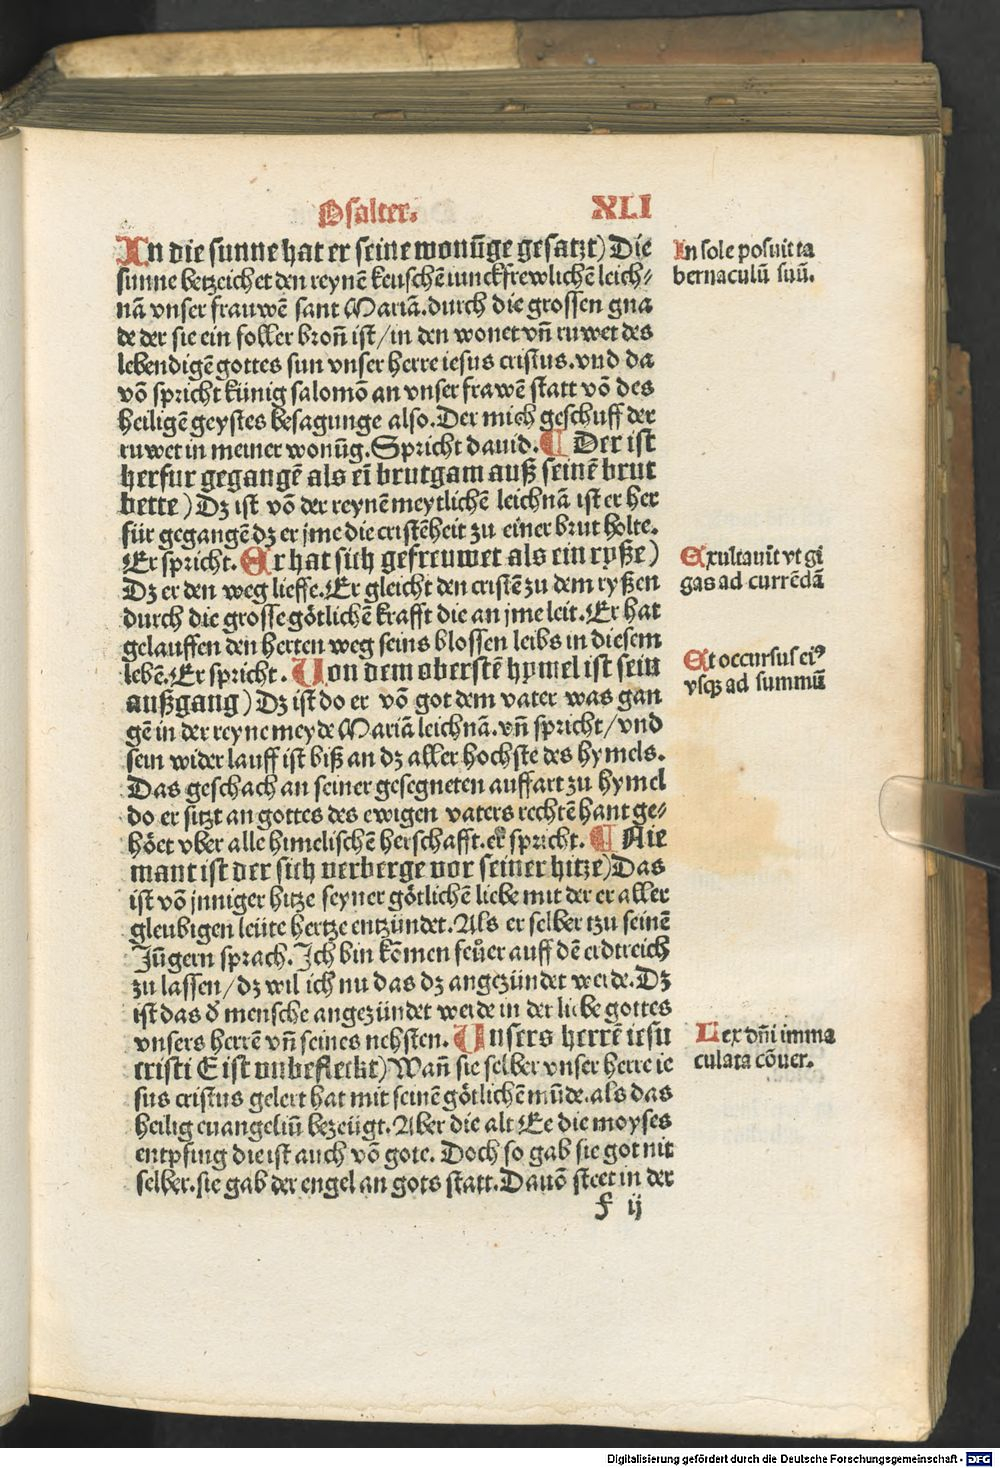 Psalter.
XLI
In die sunne hat er seine wonũge gesatzt) Die
sunne betzeichet den reynē keuschē iunckfrewlichē leich-
nā vnser frauwē sant Mariā. durch die grossen gna
de der sie ein foller bron̄ ist / in den wonet vn̄ ruwet des
lebendigē gottes sun vnser herre iesus cristus. vnd da
vō spricht künig salomō an vnser frawē statt vō des
heiligē geystes besagunge also. Der mich geschuff der
ruwet in meiner wonũg. Spricht dauid. ¶ Der ist
herfur gegangē als eī brutgam auß seinē brut
bette) Dz ist vō der reynē meytlichē leichnā ist er her
für gegangē dz er jme die cristēheit zu einer brut holte.
Er spricht. Er hat sich gefreuwet als ein ryße)
Dz er den weg lieffe. Er gleicht den cristē zu dem ryßen
durch die grosse götlichē krafft die an jme leit. Er hat
gelauffen den herten weg seins blossen leibs in diesem
lebē. Er spricht. Von dem oberstē hymel ist sein
außgang) Dz ist do er vō got dem vater was gan
gē in der reyne meyde Mariā leichnā. vn̄ spricht / vnd
sein wider lauff ist biß an dz aller hochste des hymels.
Das geschach an seiner gesegneten auffart zu hymel
do er sitzt an gottes des ewigen vaters rechtē hant ge-
höet vber alle himelischē herschafft. er spricht. ¶ Nie
mant ist der sich verberge vor seiner hitze) Das
ist vō jnniger hitze seyner götlichē liebe mit der er aller
gleubigen leüte hertze entzündet. Als er selber tzu seinē
Jũgern sprach. Ich bin kōmen feůer auff dē erdtreich
zu lassen / dz wil ich nu das dz angezündet werde. Dz
ist das d̕ mensche angezündet werde in der liebe gottes
vnsers herrē vn̄ seines nehsten. Unsers herrē iesu
cristi E ist vnbefleckt) Wan̄ sie selber vnser herre ie
sus cristus gelert hat mit seinē götlichē mũde. als das
heilig euangeliũ bezeügt. Aber die alt Ee die moyses
entpfing die ist auch vō gote. Doch so gab sie got nit
selber. sie gab der engel an gots statt. Dauō steet in der
f ij
In sole posuit ta
bernaculū suū.
Exultauit vt gi
gas ad currēdā
Et occursus eiꝰ
vsqꝫ ad summū
Lex dn̄i imma
culata cōuer.
Digitalisierung gefördert durch die Deutsche Forschungsgemeinschaft - DFG